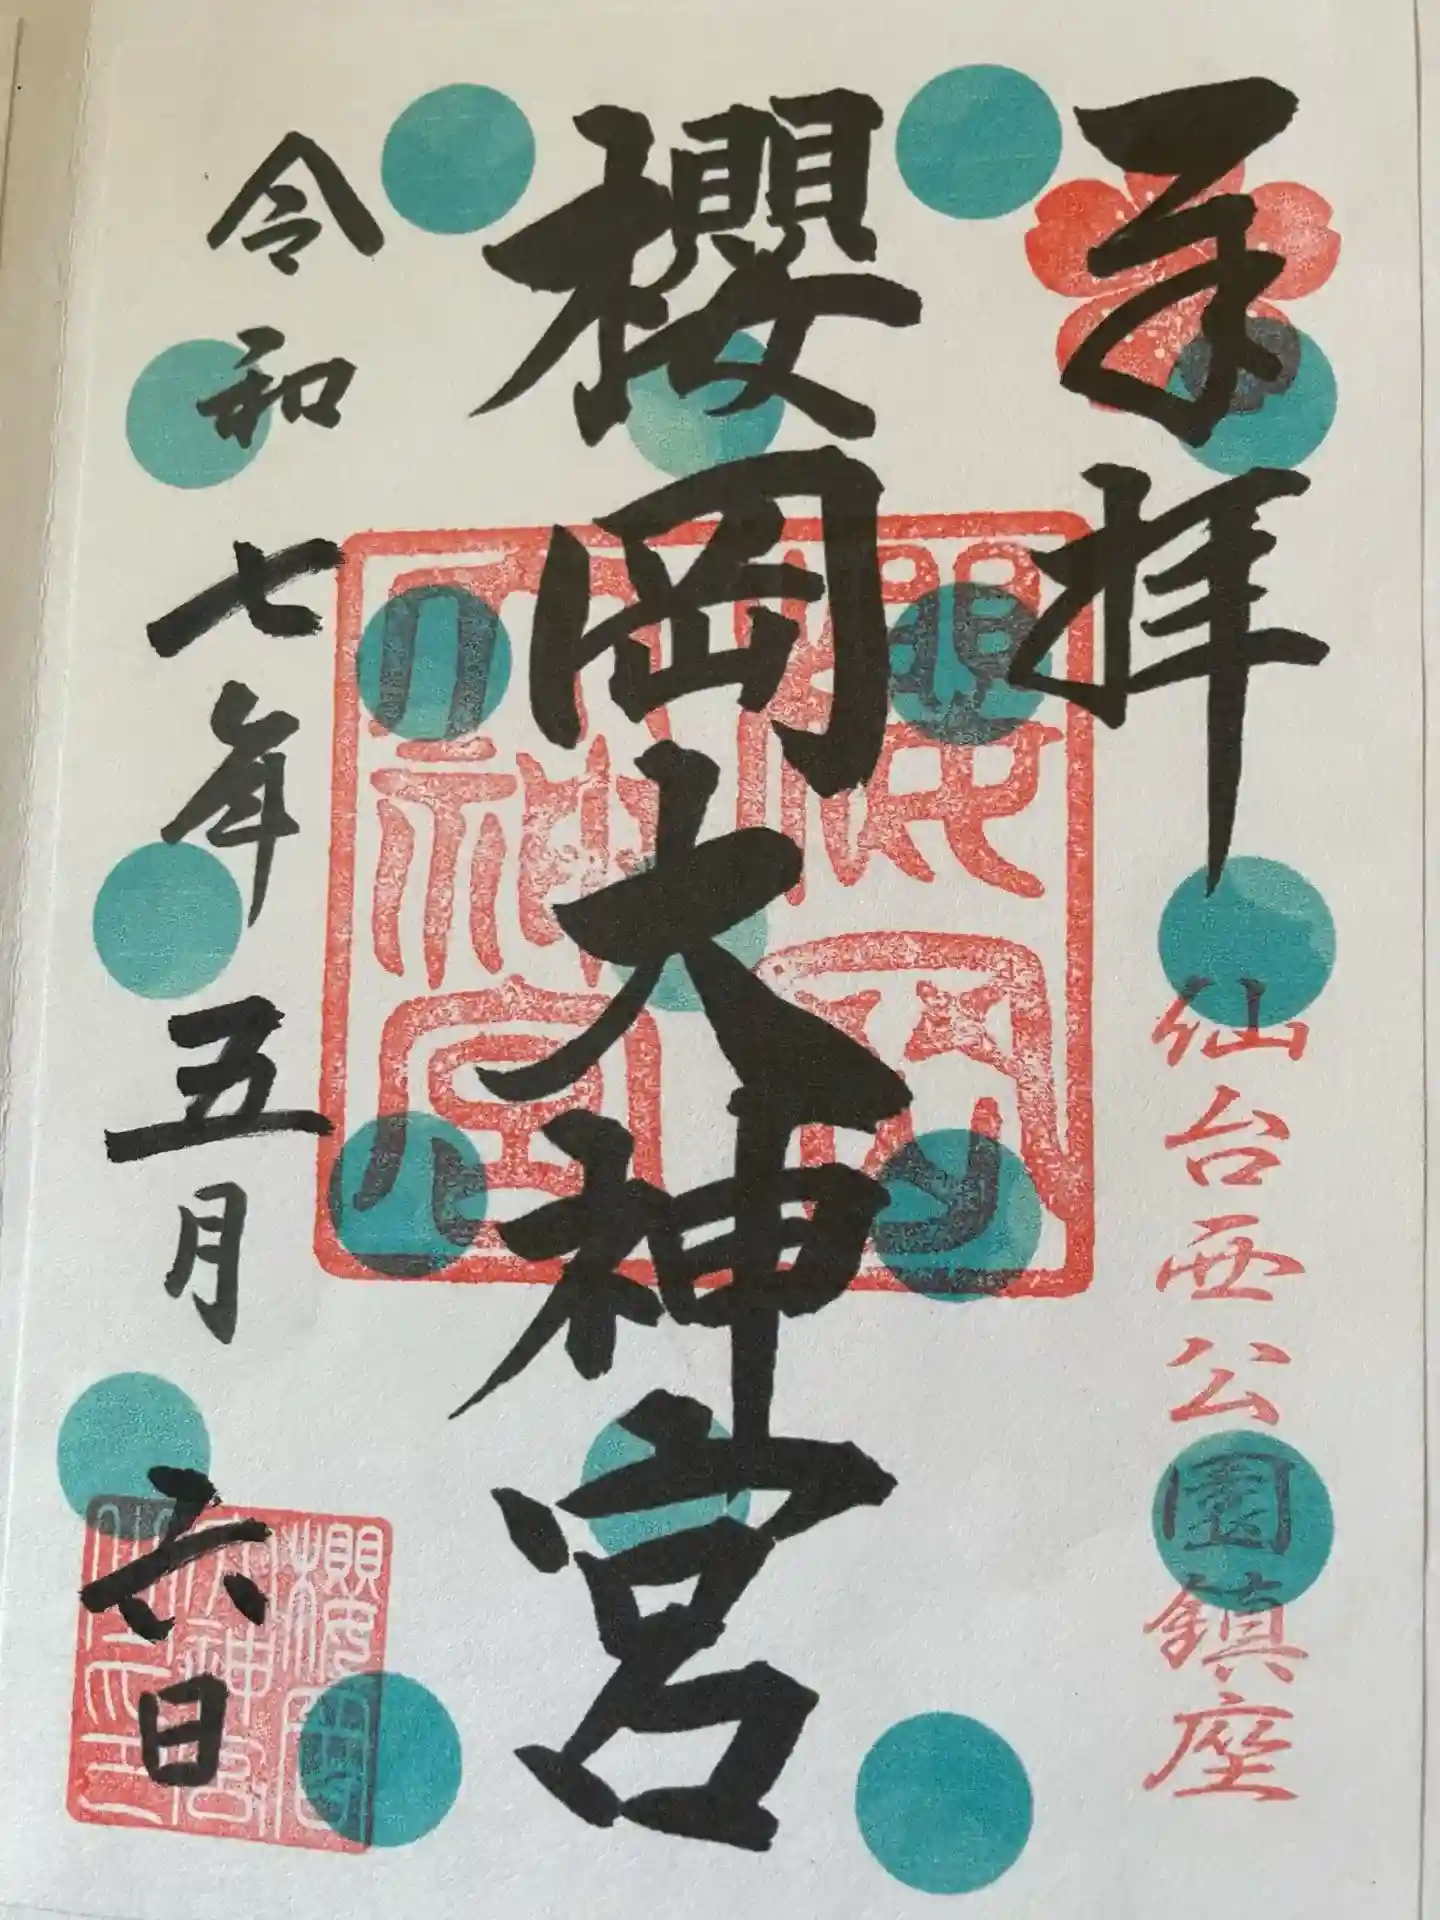 奉拝
仙台西公園鎮座
櫻岡大神宮
櫻岡
大神宮
令和七年五月六日